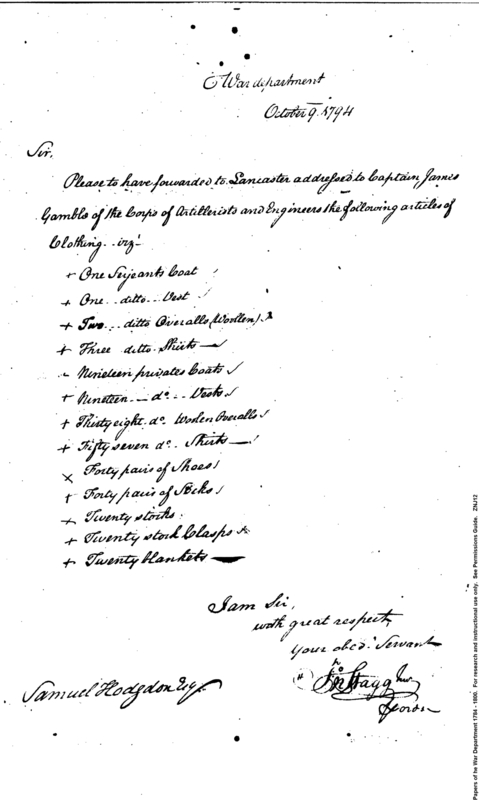 War department
October 9. 1794
Sir,
Please to have forwarded to Lancaster addressed to Captain James
Gamble of the Corps of Artillerists and Engineers the following articles of
Clothing. viz.
+ One Serjeants Coat
+ One ditto Vest
+ Two ditto Overalls (Woollen)
+ Three ditto Shirts
Nineteen privates Coats
+ Nineteen do. Vests
+ Thirty eight do. Woolen Overalls
+ Fifty seven do. Shirts
x Forty pairs of Shoes
+ Forty pairs of Socks
+ Twenty stocks
+ Twenty stock Clasps
+ Twenty blankets
I am Sir,
with great respect,
Your obed. Servant
Jno Stagg Junr
Samuel Hodgdon Esqr.
Papers of he War Department 1784 - 1800. For research and instructional use only. See Permissions Guide. ZNJ12